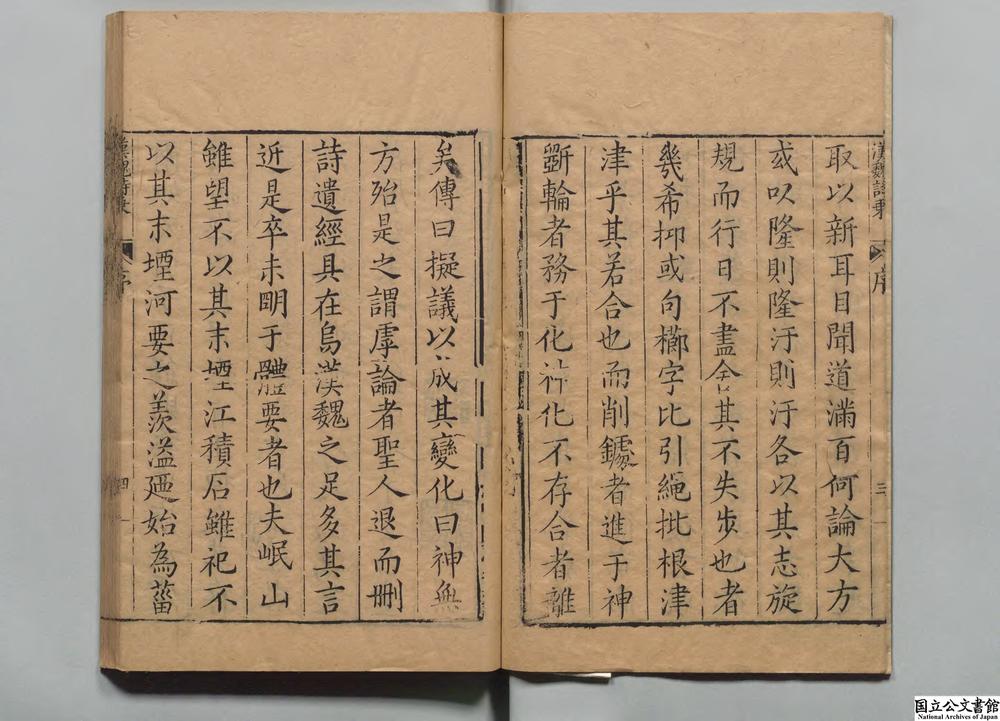 漢魏詩乗
序
三
取以新耳目聞道滿百何論大方
或以隆則隆汙則汙各以其志旋
規而行日不盡合其不失步也者
幾希抑或句櫛字比引繩批根津
津乎其若合也而削鐻者進于神
斵輪者務于化神化不存合者離
矣傳曰擬議以成其變化曰神無
方殆是之謂虖論者聖人退而刪
詩遺經具在烏漢魏之足多其言
近是卒未明于體要者也夫岷山
雖望不以其末堙江積石雖祀不
以其末堙河要之羨溢廼始為菑
漢魏詩乗
序
四
国立公文書館
National Archives of Japan